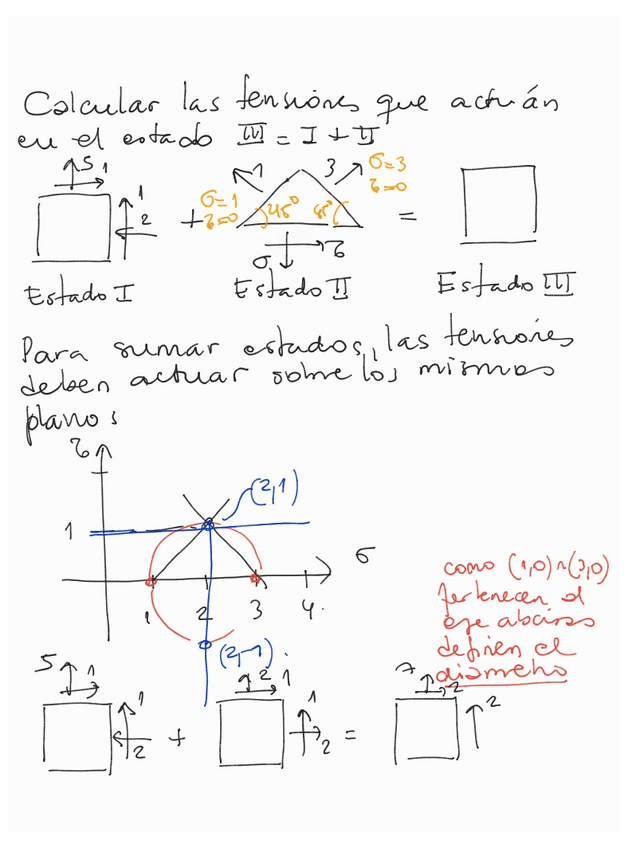 Calcular las tensiones que actúan
en el estado III = I + II
5 1 1 2 + σ=1 τ=0 1 45° 45° 3 σ=3 τ=0 =
σ τ
Estado I Estado II Estado III
Para sumar estados, las tensiones
deben actuar sobre los mismos
planos
τ
(2,1)
1
σ
1 2 3 4
(2,-1)
como (1,0) ∧ (3,0)
pertenecen al
eje abcisas
definen el
diametro
5 1 1 2 + 2 1 1 2 = 7 2 2